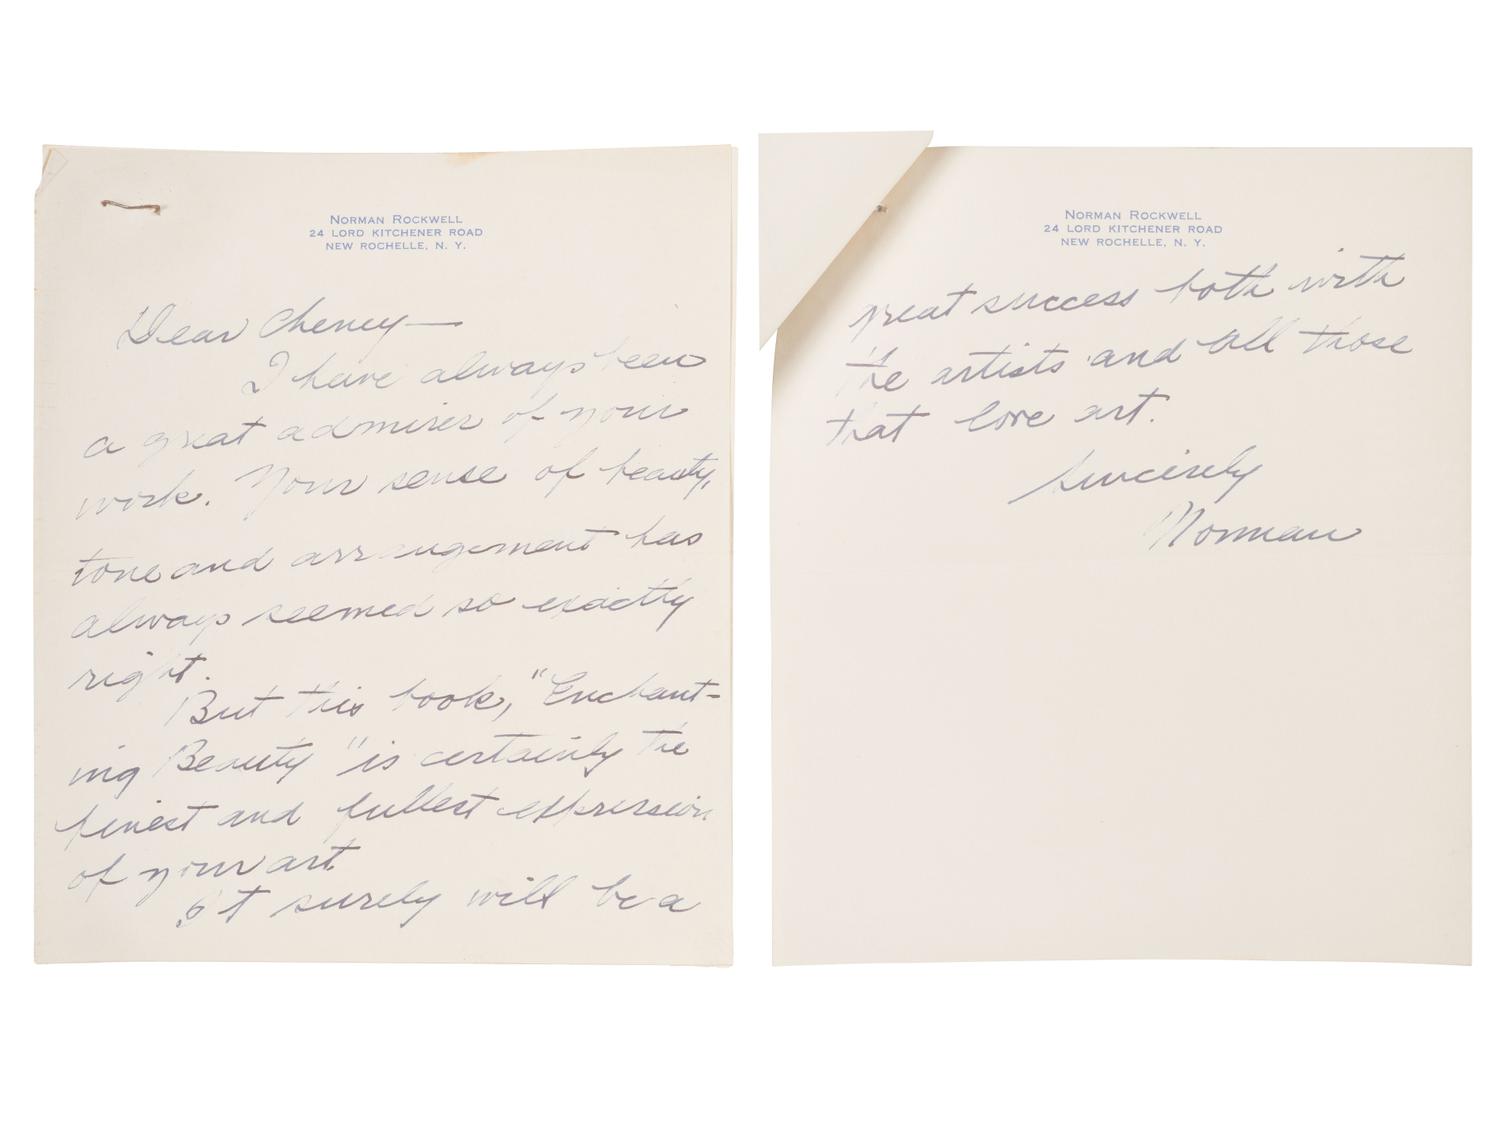 NORMAN ROCKWELL
24 LORD KITCHENER ROAD
NEW ROCHELLE, N. Y.
Dear Cheney—
I have always been
a great admirer of your
work. Your sense of beauty,
tone and arrangement has
always seemed so exactly
right.
But this book, "Enchant-
ing Beauty" is certainly the
finest and fullest expression
of your art
It surely will be a
NORMAN ROCKWELL
24 LORD KITCHENER ROAD
NEW ROCHELLE, N. Y.
great success both with
the artists and all those
that love art.
Sincerely
Norman